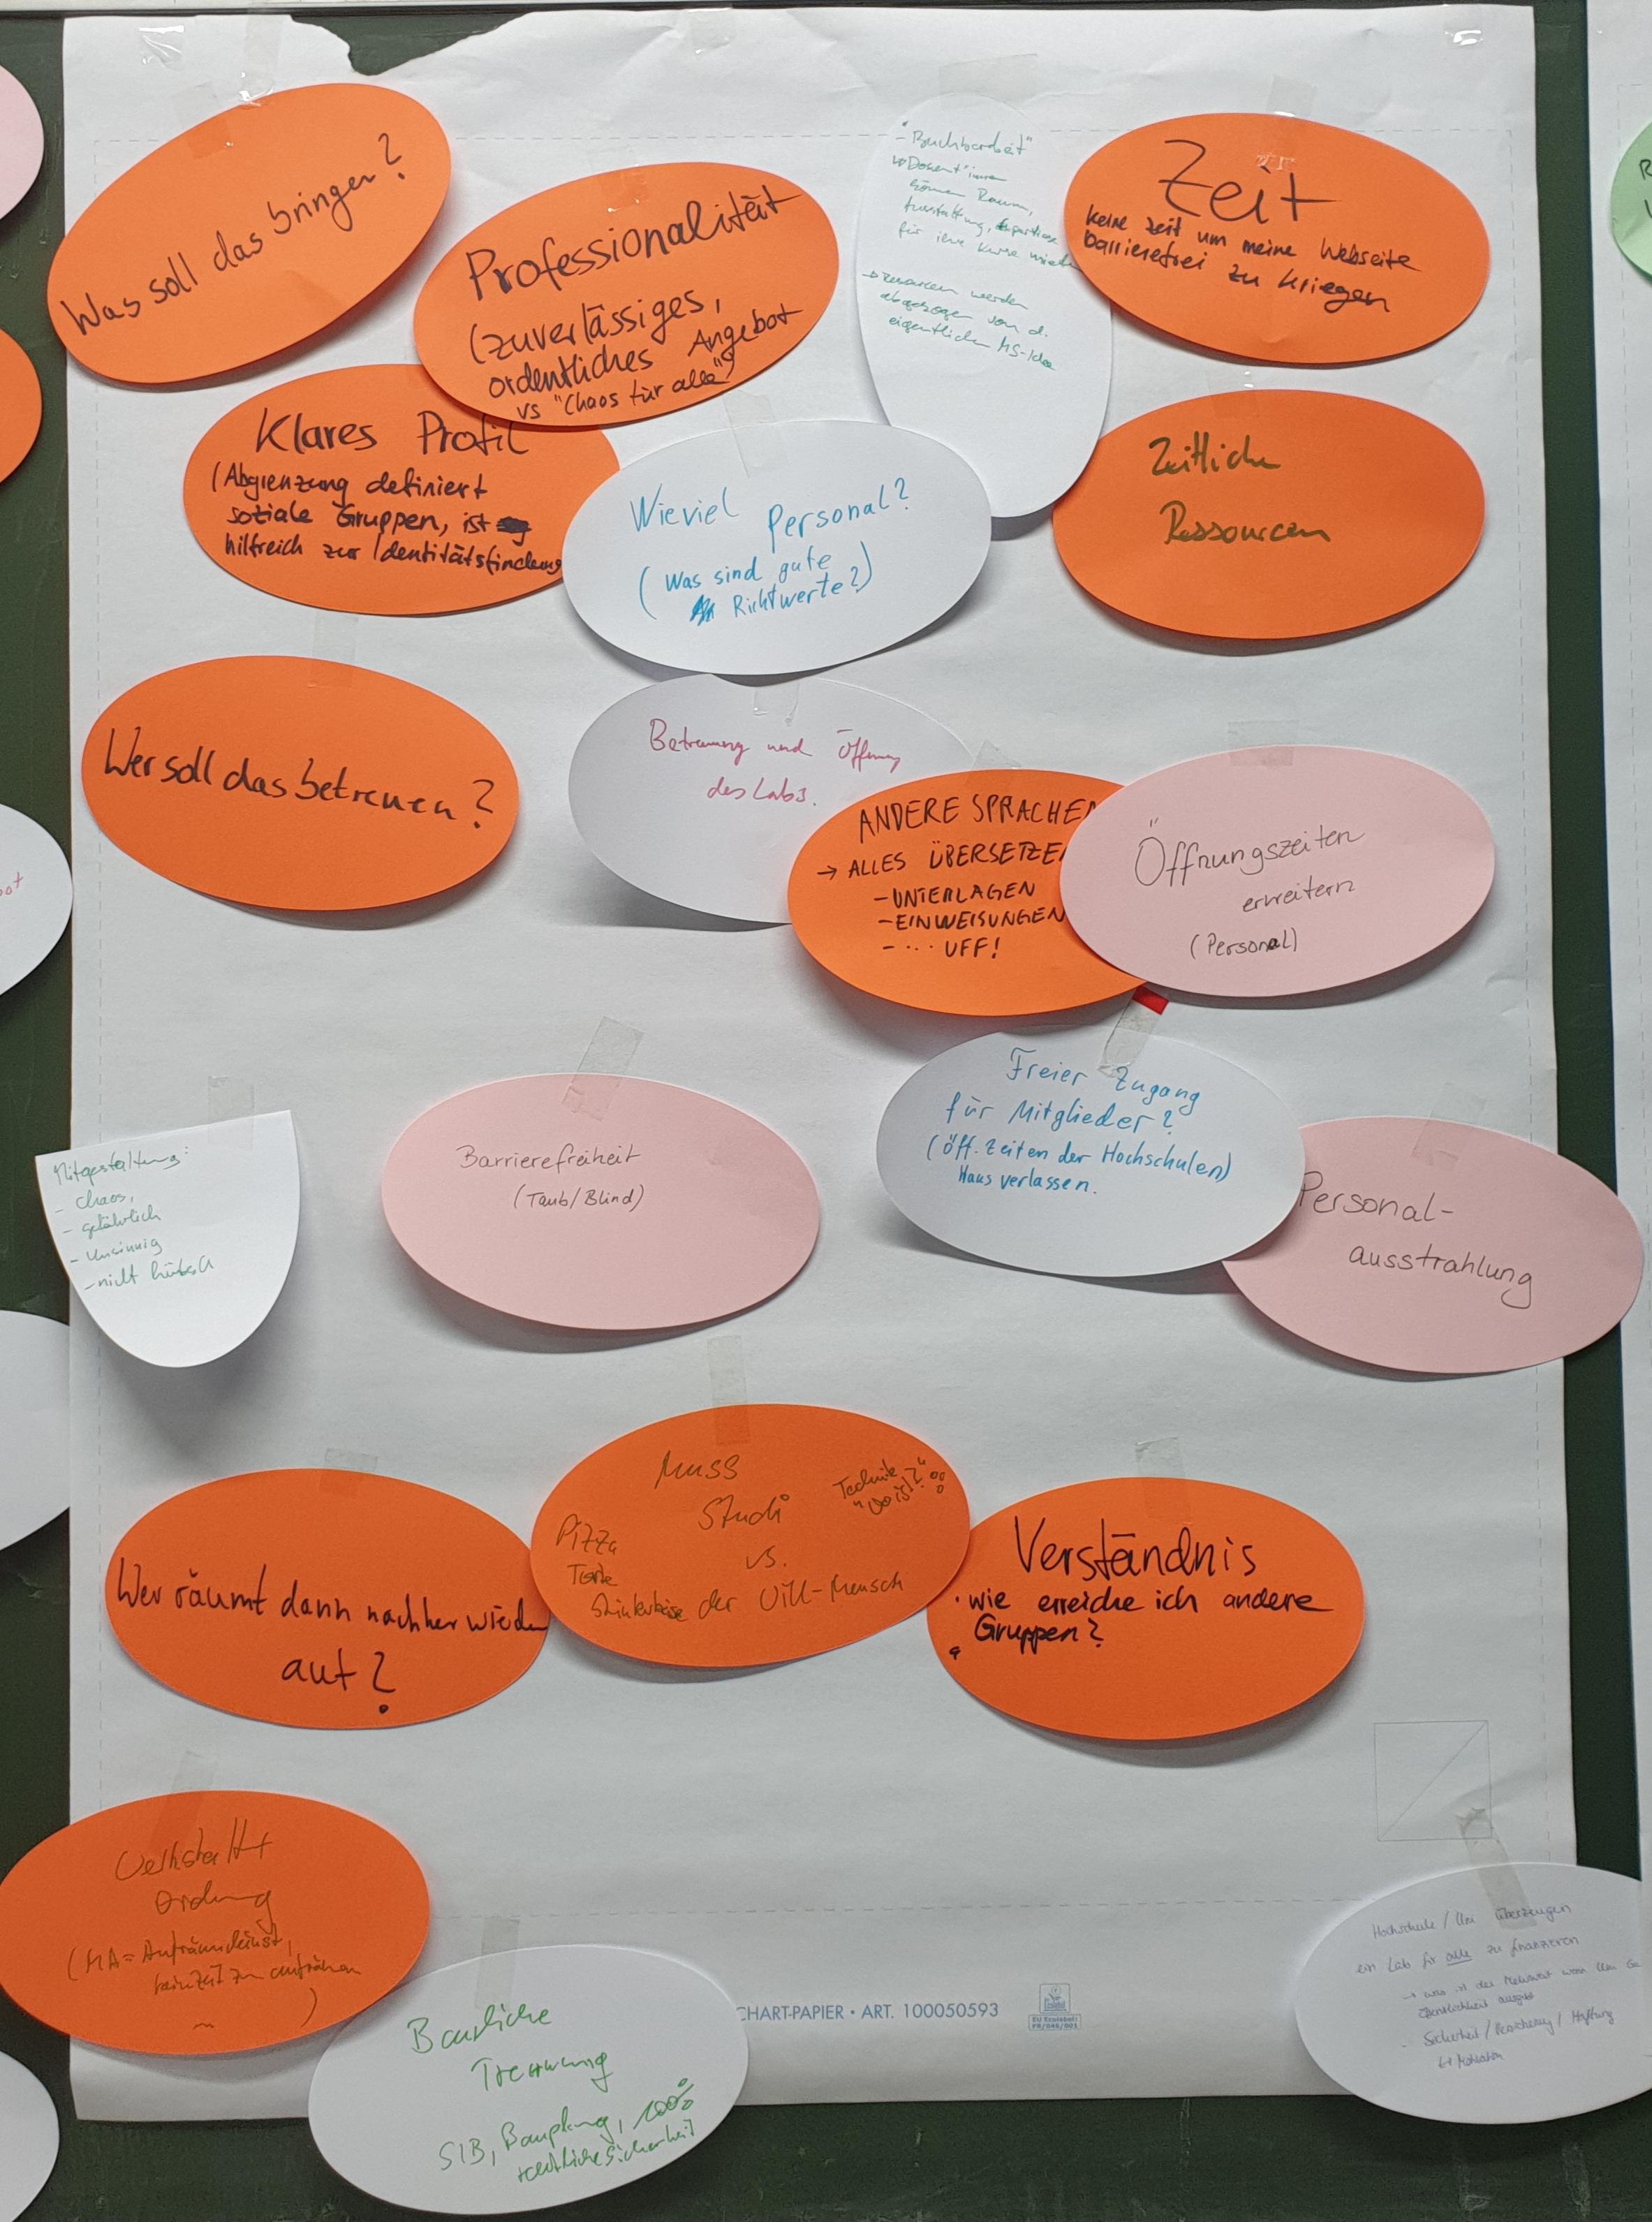 Was soll das bringen?
Professionalität
(zuverlässiges,
ordentliches Angebot
vs "Chaos für alle")
"Buchbarkeit"
können Raum,
für ihre Kurse
Ressourcen werden
abgezogen von d.
eigentlichen MS-Idee
Zeit
keine Zeit um meine Webseite
barrierefrei zu kriegen
Klares Profil
(Abgrenzung definiert
soziale Gruppen, ist
hilfreich zur Identitätsfindung
Wieviel Personal?
(Was sind gute
Richtwerte?)
Zeitliche
Ressourcen
Wer soll das betreuen?
Betreuung und Öffnung
des Labs.
ANDERE SPRACHEN
→ ALLES ÜBERSETZEN
- UNTERLAGEN
- EINWEISUNGEN
- ... UFF!
Öffnungszeiten
erweitern
(Personal)
Mitgestaltung:
- chaos,
- gefährlich
- unsinnig
- nicht hübsch
Barrierefreiheit
(Taub/Blind)
Freier Zugang
für Mitglieder?
(Öff. Zeiten der Hochschulen)
Haus verlassen.
Personal-
ausstrahlung
Wer räumt dann nachher wieder
auf?
Muss
Studi
vs.
der Will-Mensch
Pizza
Technik
Verständnis
· wie erreiche ich andere
Gruppen?
Werkstatt
Ordnung
(MA = Aufräumdienst,
kein Zeit zum aufräumen
)
Bauliche
Trennung
SIB, Bauplanung, 100%
rechtliche Sicherheit
CHART-PAPIER • ART. 100050593
EU Ecolabel:
FR/046/001
Hochschule / Uni überzeugen
ein Lab für alle zu finanzieren
- Sicherheit / Versicherung / Haftung
Motivation